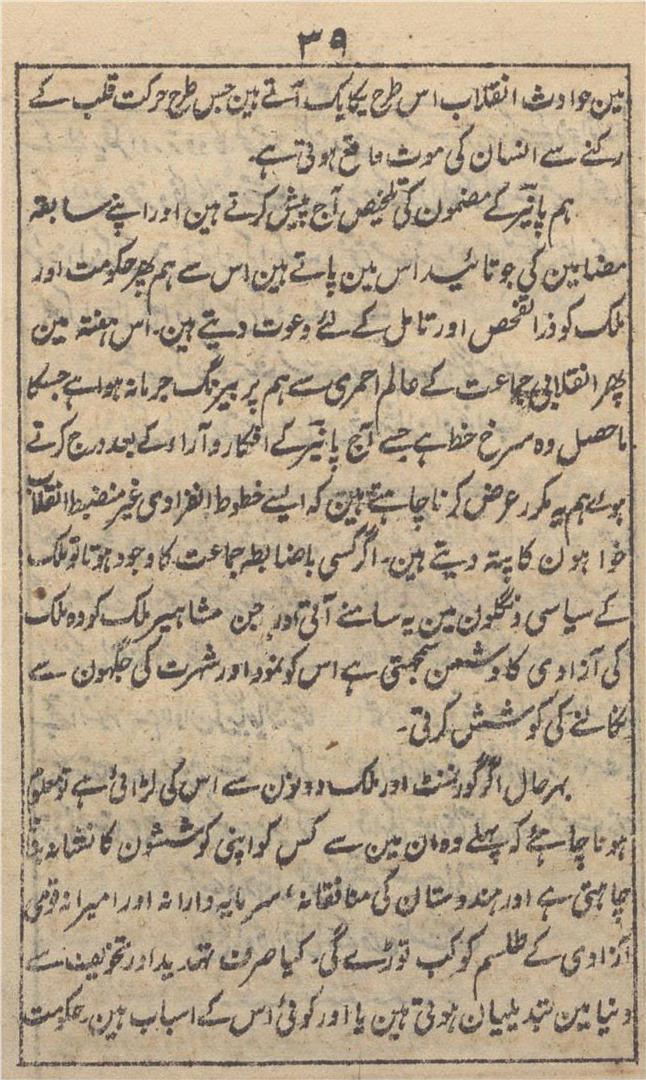 ۳۹
مین حوادث انقلاب اس طرح یکایک آتے ہین جس طرح حرکت قلب کے
رکنے سے انسان کی موت واقع ہوتی ہے۔
ہم پانیر کے مضمون کی تلخیص آج پیش کرتے ہین اور اپنے سابقہ
مضامین کی جو تائید اس مین پاتے ہین اس سے ہم پھر حکومت اور
ملک کو ذرا تفحص اور تامل کے لئے دعوت دیتے ہین۔ اس ہفتہ مین
پھر انقلابی جماعت کے عالم احمری سے ہم پر بیرنگ جرمانہ ہوا ہے جسکا
ماحصل وہ سرخ خط ہے جسے آج پانیر کے افکار و آراء کے بعد درج کرتے
ہوے ہم یہ مکرر عرض کرنا چاہتے ہین کہ ایسے خطوط انفرادی غیر منضبط انقلاب
خواہون کا پتہ دیتے ہین۔ اگر کسی باضابطہ جماعت کا وجود ہوتا تو ملک
کے سیاسی دنگلون مین یہ سامنے آتی اور جن مشاہیر ملک کو وہ ملک
کی آزادی کا دشمن سمجھتی ہے اس کو نمود اور شہرت کی جگہون سے
نکالنے کی کوشش کرتی۔
بہر حال اگر گورنمنٹ اور ملک دونون سے اس کی لڑائی ہے تو معلوم
ہونا چاہئے کہ پہلے وہ ان مین سے کس کو اپنی کوششون کا نشانہ بنانا
چاہتی ہے اور ہندوستان کی منافقانہ، سرمایہ دارانہ اور امیرانہ قومی
آزادی کے طلسم کو کب توڑے گی۔ کیا صرف تہدید اور تخویف سے
دنیا مین تبدیلیان ہوتی ہین یا اور کوئی اس کے اسباب ہین۔ حکومت